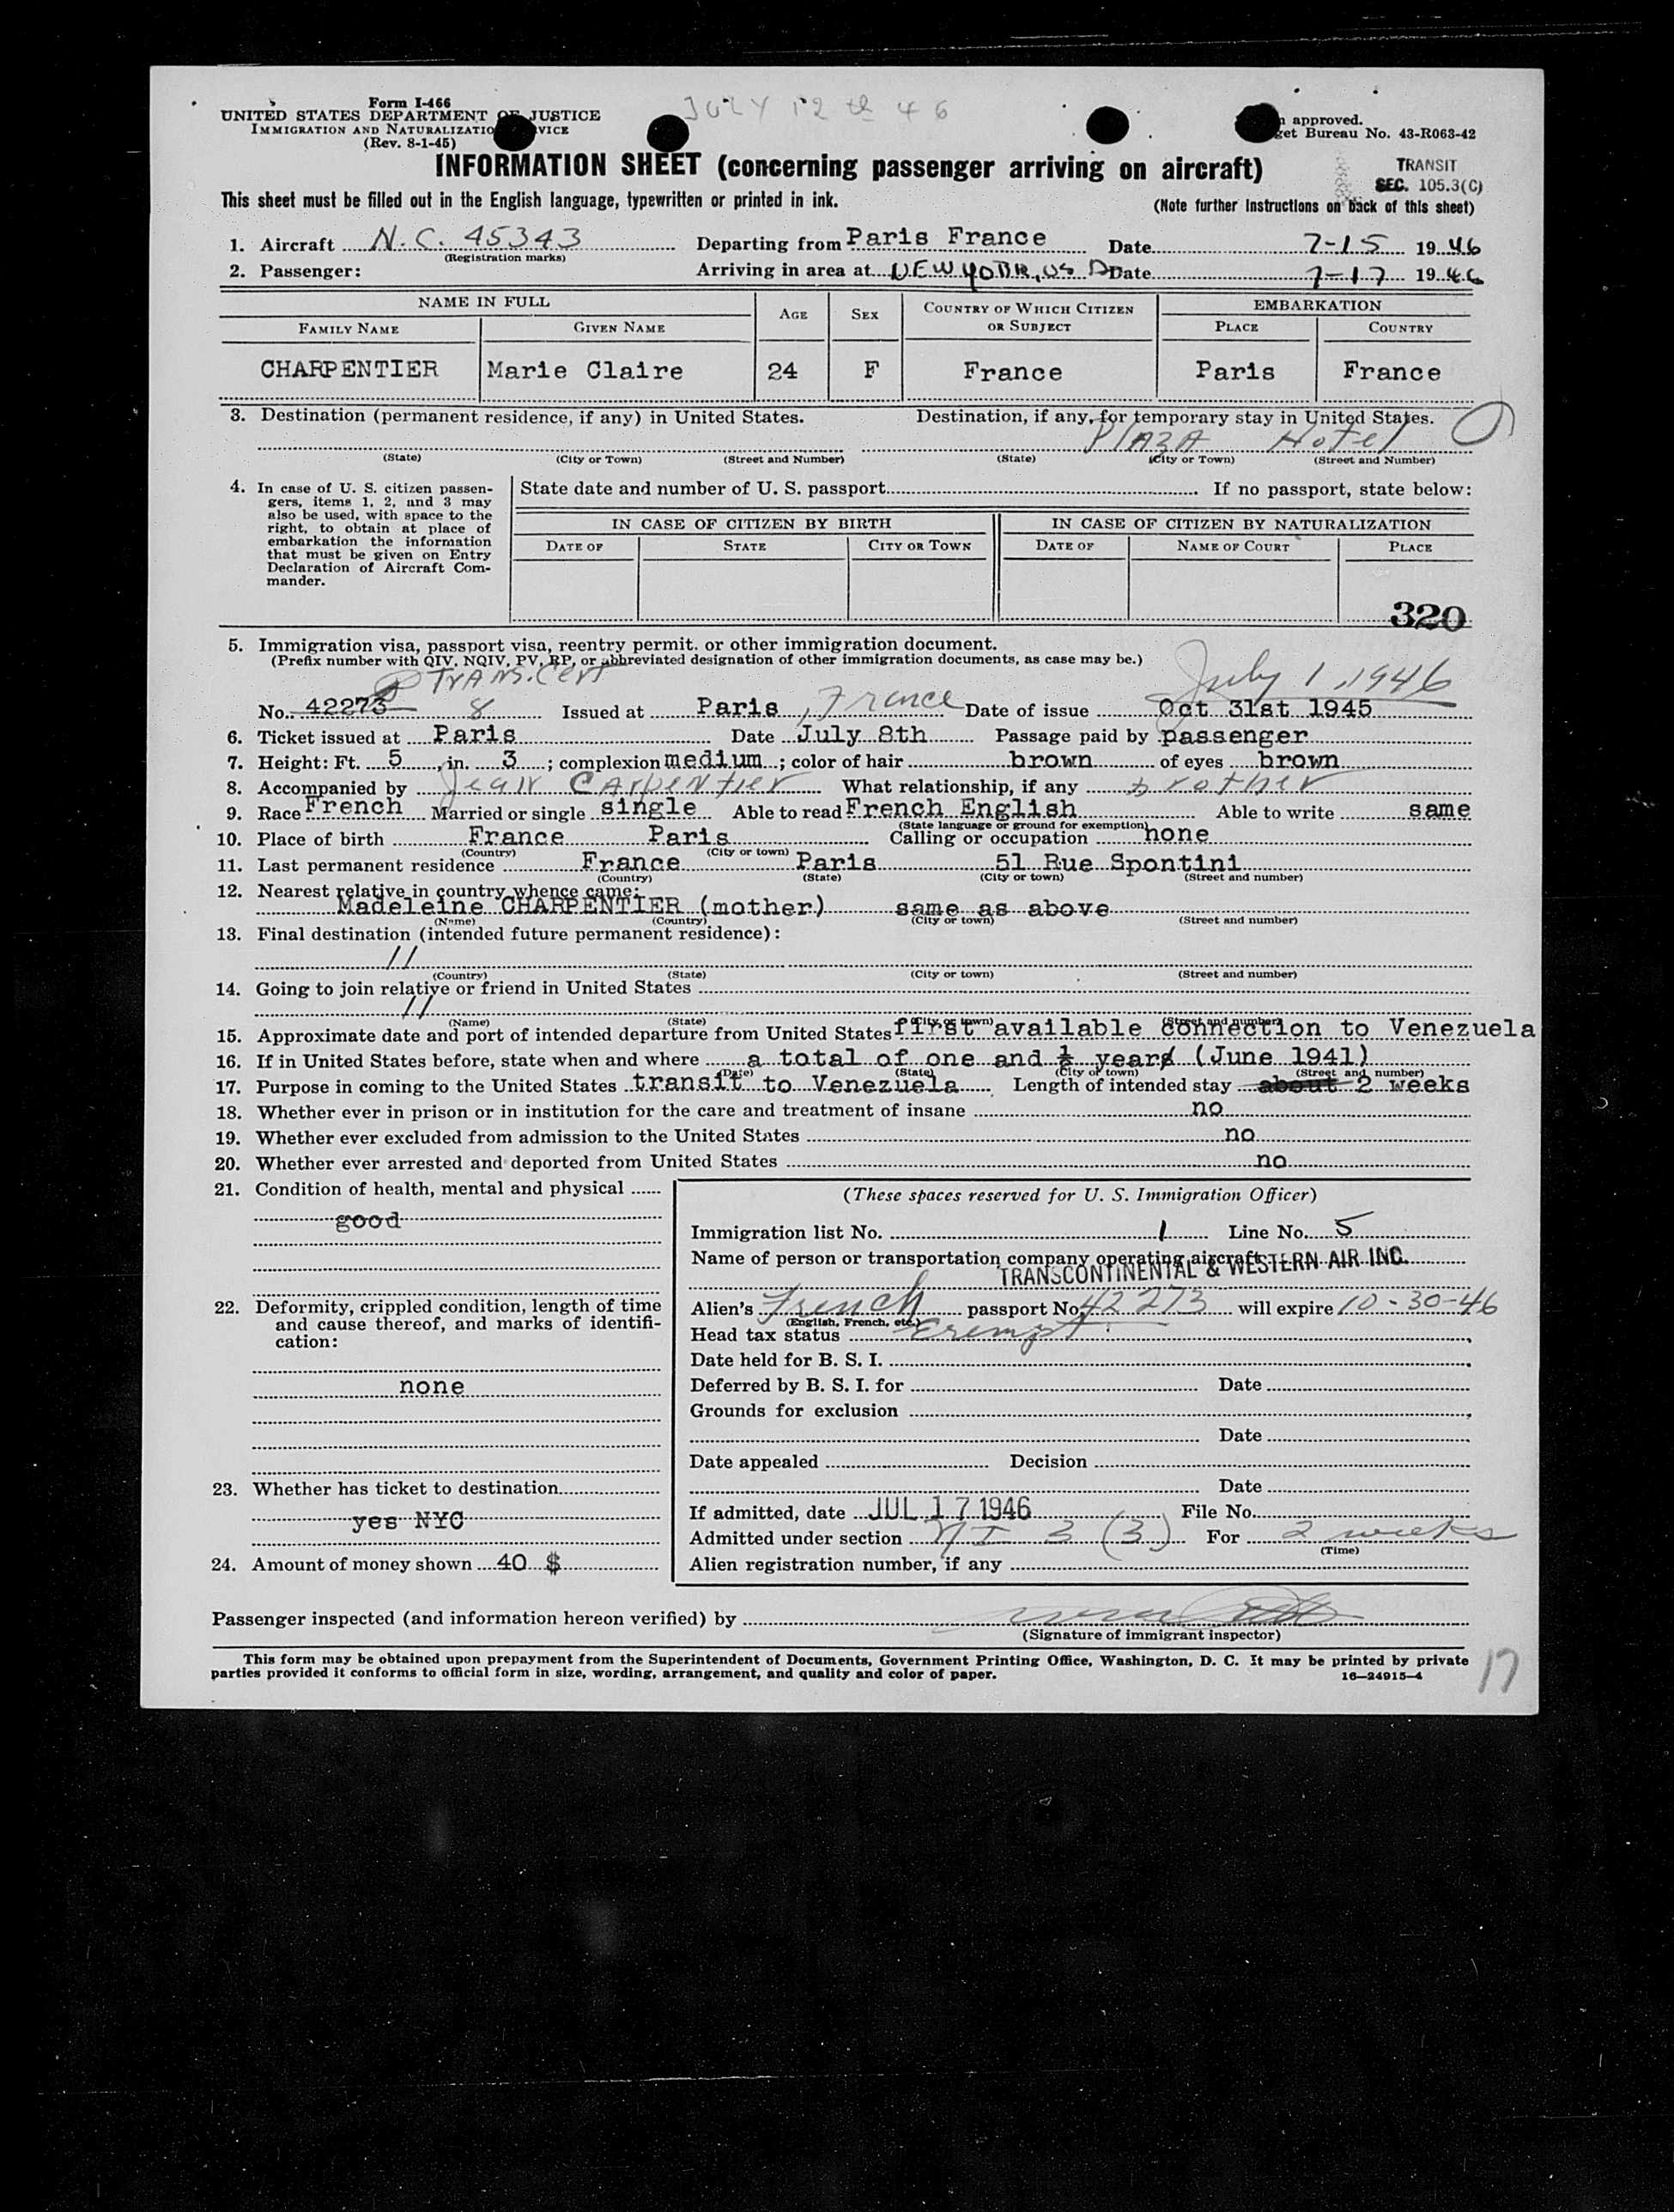 JULY 12th 46
Form I-466
UNITED STATES DEPARTMENT OF JUSTICE
IMMIGRATION AND NATURALIZATIO VICE
(Rev. 8-1-45)
n approved.
get Bureau No. 43-R063-42
INFORMATION SHEET (concerning passenger arriving on aircraft)
TRANSIT
SEC. 105.3(C)
This sheet must be filled out in the English language, typewritten or printed in ink.
(Note further instructions on back of this sheet)
1. Aircraft N.C. 45343 Departing from Paris France Date 7-15 1946
(Registration marks)
2. Passenger: Arriving in area at NEW YORK, US Date 7-17 1946
NAME IN FULL AGE SEX COUNTRY OF WHICH CITIZEN OR SUBJECT EMBARKATION
FAMILY NAME GIVEN NAME PLACE COUNTRY
CHARPENTIER Marie Claire 24 F France Paris France
3. Destination (permanent residence, if any) in United States. Destination, if any, for temporary stay in United States.
PLAZA Hotel
(State) (City or Town) (Street and Number) (State) (City or Town) (Street and Number)
4. In case of U. S. citizen passengers, items 1, 2, and 3 may also be used, with space to the right, to obtain at place of embarkation the information that must be given on Entry Declaration of Aircraft Commander.
State date and number of U. S. passport If no passport, state below:
IN CASE OF CITIZEN BY BIRTH IN CASE OF CITIZEN BY NATURALIZATION
DATE OF STATE CITY OR TOWN DATE OF NAME OF COURT PLACE
320
5. Immigration visa, passport visa, reentry permit. or other immigration document.
(Prefix number with QIV, NQIV, PV, RP, or abbreviated designation of other immigration documents, as case may be.)
TrANS. Cert July 1, 1946
No. 42273 8 Issued at Paris, France Date of issue Oct 31st 1945
6. Ticket issued at Paris Date July 8th Passage paid by passenger
7. Height: Ft. 5, in. 3; complexion medium; color of hair brown of eyes brown
8. Accompanied by Jean CArpentier What relationship, if any brother
9. Race French Married or single single Able to read French English Able to write same
(State language or ground for exemption)
10. Place of birth France Paris Calling or occupation none
(Country) (City or town)
11. Last permanent residence France Paris 51 Rue Spontini
(Country) (State) (City or town) (Street and number)
12. Nearest relative in country whence came:
Madeleine CHARPENTIER (mother) same as above
(Name) (Country) (City or town) (Street and number)
13. Final destination (intended future permanent residence):
//
(Country) (State) (City or town) (Street and number)
14. Going to join relative or friend in United States
//
(Name) (State) (City or town) (Street and number)
15. Approximate date and port of intended departure from United States first available connection to Venezuela
16. If in United States before, state when and where a total of one and ½ years (June 1941)
(Date) (State) (City or town) (Street and number)
17. Purpose in coming to the United States transit to Venezuela Length of intended stay about 2 weeks
18. Whether ever in prison or in institution for the care and treatment of insane no
19. Whether ever excluded from admission to the United States no
20. Whether ever arrested and deported from United States no
21. Condition of health, mental and physical
good
22. Deformity, crippled condition, length of time and cause thereof, and marks of identification:
none
23. Whether has ticket to destination
yes NYC
24. Amount of money shown 40 $
(These spaces reserved for U. S. Immigration Officer)
Immigration list No. 1 Line No. 5
Name of person or transportation company operating aircraft
TRANSCONTINENTAL & WESTERN AIR INC.
Alien's French passport No. 42273 will expire 10-30-46
(English, French, etc.)
Head tax status Exempt
Date held for B. S. I.
Deferred by B. S. I. for Date
Grounds for exclusion
Date
Date appealed Decision
Date
If admitted, date JUL 17 1946 File No.
Admitted under section 3 (3) For 2 weeks
(Time)
Alien registration number, if any
Passenger inspected (and information hereon verified) by
(Signature of immigrant inspector)
This form may be obtained upon prepayment from the Superintendent of Documents, Government Printing Office, Washington, D. C. It may be printed by private
parties provided it conforms to official form in size, wording, arrangement, and quality and color of paper.
16—24915-4
17